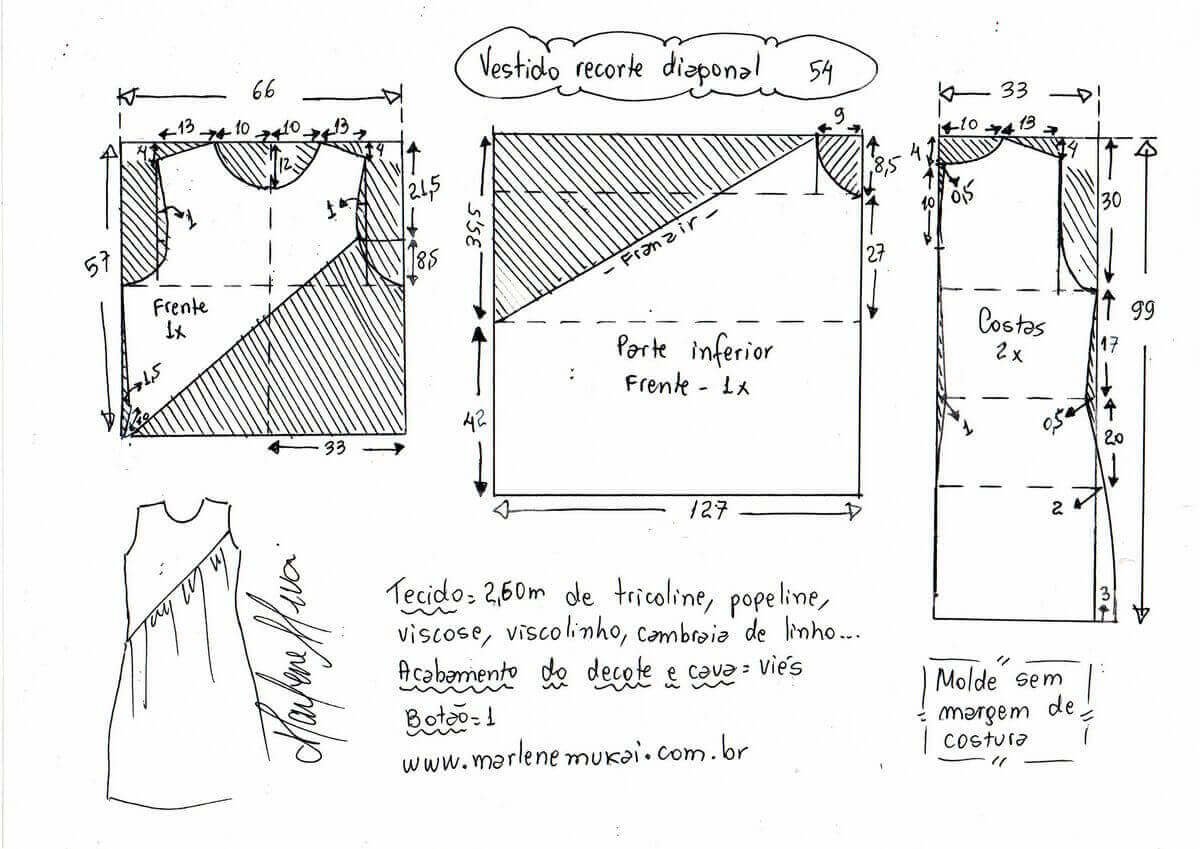 Vestido recorte diagonal 54
66
13 10 10 13
4 12 4
21,5
1 1
57
8,5
Frente
1x
1,5
10
33
9
8,5
35,5
- Franzir -
27
Parte inferior
Frente - 1x
42
127
33
10 13
4 4
0,5
10
30
99
Costas
2x
17
1 0,5
20
2
3
Tecido = 2,60m de tricoline, popeline,
viscose, viscolinho, cambraia de linho...
Acabamento do decote e cava = viés
Botão = 1
www.marlenemukai.com.br
Molde sem
margem de
costura